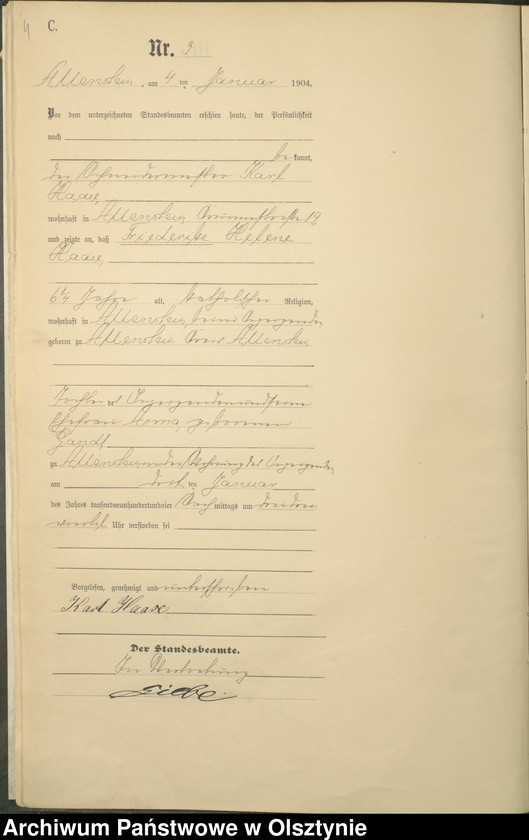 4
C.
Nr. 3
Allenstein, am 4 ten Januar 1904.
Vor dem unterzeichneten Standesbeamten erschien heute, der Persönlichkeit
nach
be kannt,
der Schneidermeister Karl
Haase,
wohnhaft in Allenstein, 19
und zeigte an, daß Friederike Helene
Haase,
6 1/4 Jahre alt, katholischer Religion,
wohnhaft in Allenstein, beim Anzeigenden,
geboren zu Allenstein Kreis Allenstein
Tochter des Anzeigenden und seiner
Ehefrau Anna, geborenen
zu Allenstein in der Wohnung des Anzeigenden,
am dritten Januar
des Jahres tausendneunhundertundvier Nachmittags um drei drei
viertel Uhr verstorben sei
Vorgelesen, genehmigt und unterschrieben
Karl Haase
Der Standesbeamte.
In Vertretung
Archiwum Państwowe w Olsztynie